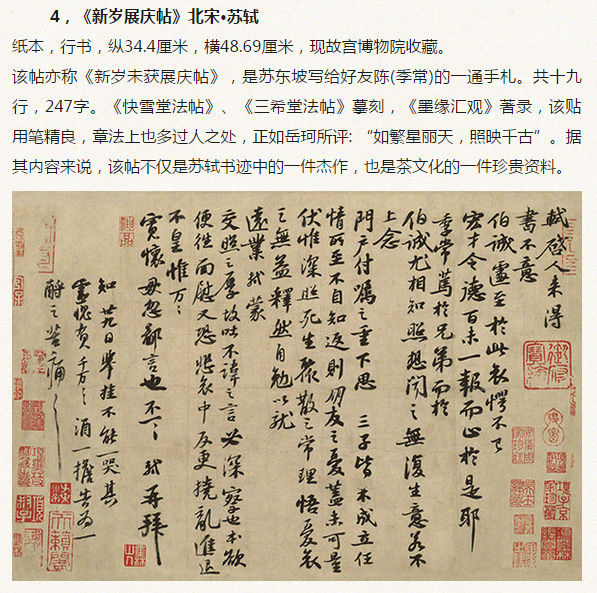 4，《新岁展庆帖》北宋·苏轼
纸本，行书，纵34.4厘米，横48.69厘米，现故宫博物院收藏。
该帖亦称《新岁未获展庆帖》，是苏东坡写给好友陈(季常)的一通手札。共十九
行，247字。《快雪堂法帖》、《三希堂法帖》摹刻，《墨缘汇观》著录，该贴
用笔精良，章法上也多过人之处，正如岳珂所评: “如繁星丽天，照映千古”。据
其内容来说，该帖不仅是苏轼书迹中的一件杰作，也是茶文化的一件珍贵资料。
軾啓人来得
書不意
伯誠遽至於此哀愕不已
宏才令德百未一報而止於是耶
季常篤於兄弟而於
伯誠尤相知照想聞之無復生意若不
上念
門户付囑之重下思三子皆不成立任
情所至不自知返則朋友之憂蓋未可量
伏惟深照死生聚散之常理悟憂哀
之無益釋然自勉以就
遠業軾蒙
交照之厚故吐不諱之言必深察也本欲
便往面慰又恐悲哀中反更撓亂進退
不皇惟万万
寬懷毋忽鄙言也不一一軾再拜
知廿九日舉挂不能一哭其
靈愧負千万千万酒一擔告为一
酹之苦痛苦痛